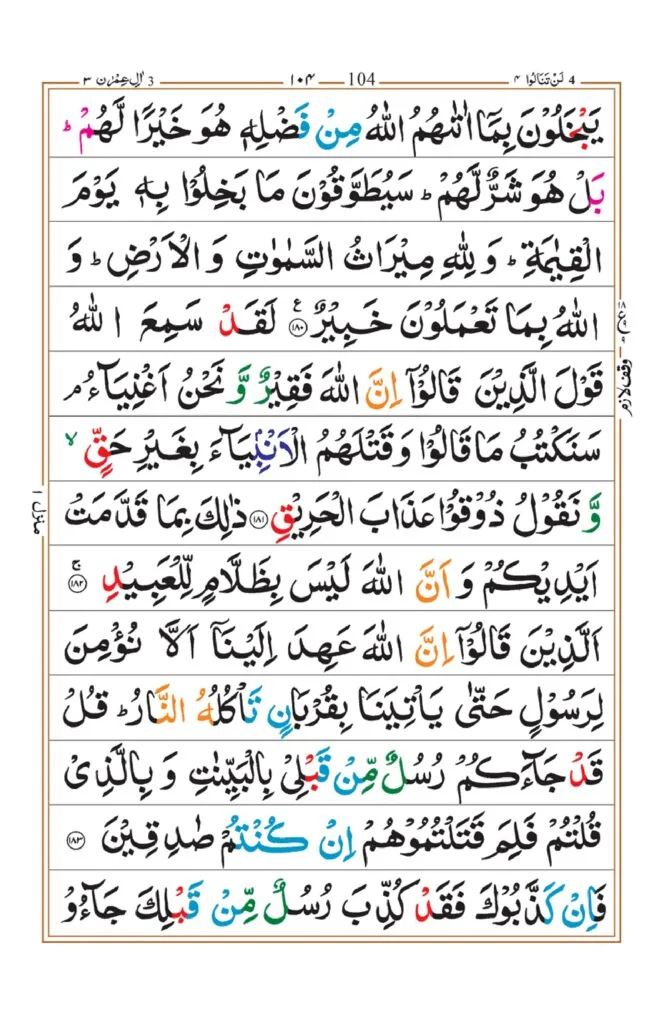 4 لَنْ تَنَالُوا ۴ 104 ۱۰۴ 3 اٰلِ عِمْرٰن ۳
يَبْخَلُوْنَ بِمَاۤ اٰتٰىهُمُ اللّٰهُ مِنْ فَضْلِهٖ هُوَ خَيْرًا لَّهُمْ ؕ
بَلْ هُوَ شَرٌّ لَّهُمْ ؕ سَيُطَوَّقُوْنَ مَا بَخِلُوْا بِهٖ يَوْمَ
الْقِيٰمَةِ ؕ وَ لِلّٰهِ مِيْرَاثُ السَّمٰوٰتِ وَ الْاَرْضِ ؕ وَ
اللّٰهُ بِمَا تَعْمَلُوْنَ خَبِيْرٌ ﴿۱۸۰﴾ۧ لَقَدْ سَمِعَ اللّٰهُ
قَوْلَ الَّذِيْنَ قَالُوْۤا اِنَّ اللّٰهَ فَقِيْرٌ وَّ نَحْنُ اَغْنِيَآءُ ۘ
وقف لازم
سَنَكْتُبُ مَا قَالُوْا وَ قَتْلَهُمُ الْاَنْۢبِيَآءَ بِغَيْرِ حَقٍّ ۙ
وَّ نَقُوْلُ ذُوْقُوْا عَذَابَ الْحَرِيْقِ ﴿۱۸۱﴾ ذٰلِكَ بِمَا قَدَّمَتْ
منزل ۱
اَيْدِيْكُمْ وَ اَنَّ اللّٰهَ لَيْسَ بِظَلَّامٍ لِّلْعَبِيْدِ ﴿۱۸۲﴾ۚ
اَلَّذِيْنَ قَالُوْۤا اِنَّ اللّٰهَ عَهِدَ اِلَيْنَاۤ اَلَّا نُؤْمِنَ
لِرَسُوْلٍ حَتّٰى يَاْتِيَنَا بِقُرْبَانٍ تَاْكُلُهُ النَّارُ ؕ قُلْ
قَدْ جَآءَكُمْ رُسُلٌ مِّنْ قَبْلِيْ بِالْبَيِّنٰتِ وَ بِالَّذِيْ
قُلْتُمْ فَلِمَ قَتَلْتُمُوْهُمْ اِنْ كُنْتُمْ صٰدِقِيْنَ ﴿۱۸۳﴾
فَاِنْ كَذَّبُوْكَ فَقَدْ كُذِّبَ رُسُلٌ مِّنْ قَبْلِكَ جَآءُوْ